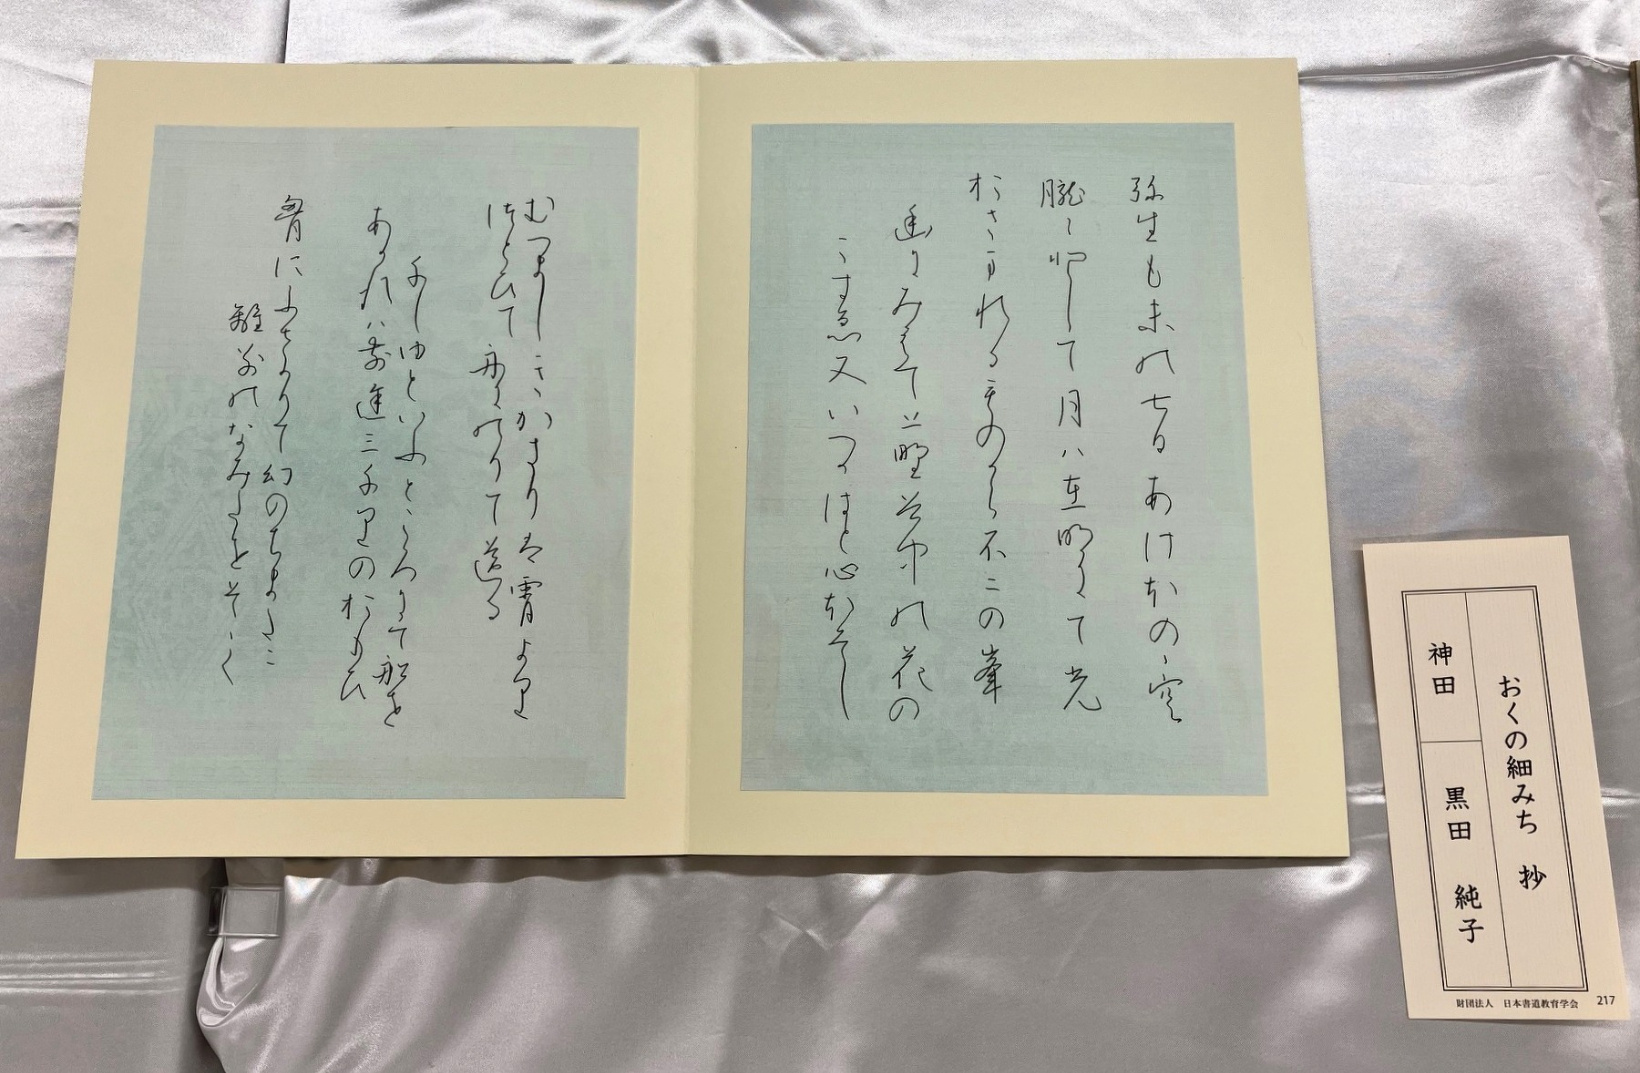 弥生も末の七日あけほのゝ空
朧々として月ハ在明にて光
おさまれるものから不二の峯
幽にみえて上野谷中の花の
こすゑ又いつかはと心ほそし
むつましきかきりは宵より
つとひて舟にのりて送る
千しゆといふところにて船を
あかれハ前途三千里のおもひ
胸にふさかりて幻のちまたに
離別のなみたをそゝく
おくの細みち 抄
神田 黒田 純子
財団法人 日本書道教育学会 217